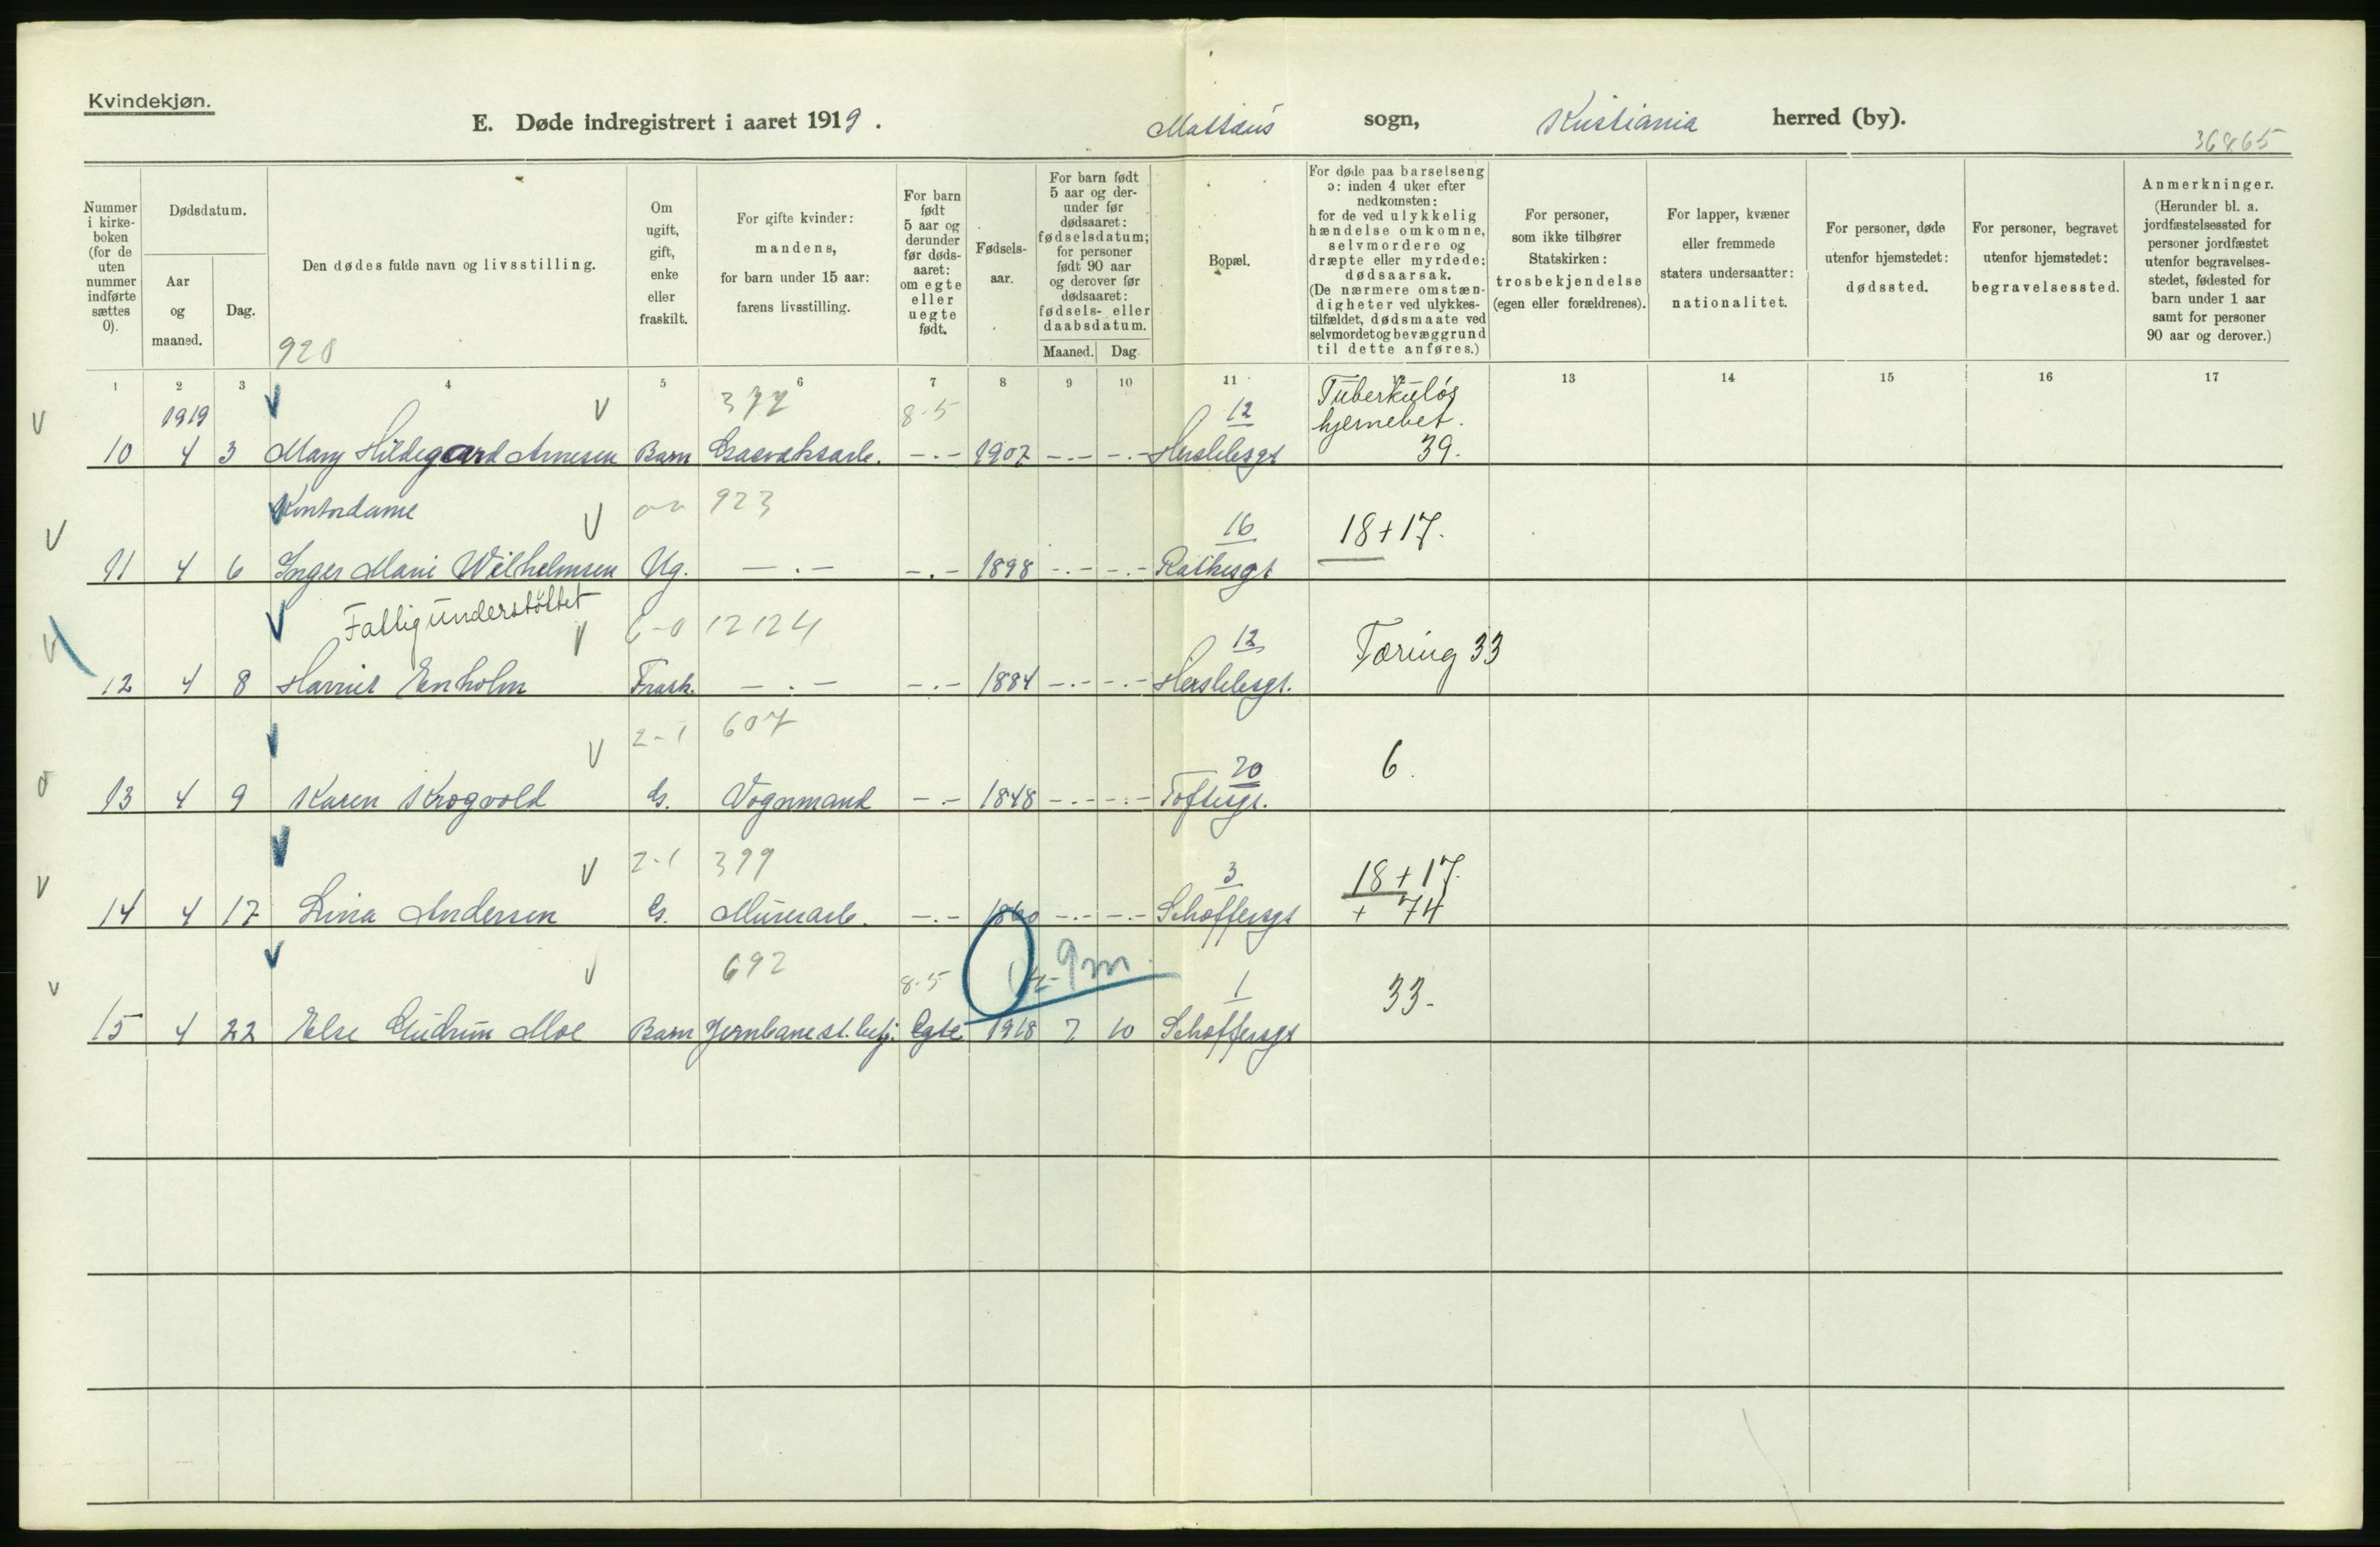 Kvindekjøn.
E. Døde indregistrert i aaret 1919. Mattæus sogn, Kristiania herred (by).
36865
Nummer i kirke-boken (for de uten nummer indførte sættes 0).
Dødsdatum.
Aar og maaned.
Dag.
Den dødes fulde navn og livsstilling.
920
Om ugift, gift, enke eller fraskilt.
For gifte kvinder: mandens, for barn under 15 aar: farens livsstilling.
For barn født 5 aar og derunder før døds-aaret: om egte eller uegte født.
Fødsels-aar.
For barn født 5 aar og der-under før dødsaaret: fødselsdatum; for personer født 90 aar og derover før dødsaaret: fødsels- eller daabsdatum.
Maaned. Dag.
Bopæl.
For døde paa barselseng ɔ: inden 4 uker efter nedkomsten: for de ved ulykkelig hændelse omkomne, selvmordere og dræpte eller myrdede: dødsaarsak. (De nærmere omstæn-digheter ved ulykkes-tilfældet, dødsmaate ved selvmordet og bevæggrund til dette anføres.)
For personer, som ikke tilhører Statskirken: trosbekjendelse (egen eller forældrenes).
For lapper, kvæner eller fremmede staters undersaatter: nationalitet.
For personer, døde utenfor hjemstedet: dødssted.
For personer, begravet utenfor hjemstedet: begravelsessted.
Anmerkninger. (Herunder bl. a. jordfæstelsessted for personer jordfæstet utenfor begravelses-stedet, fødested for barn under 1 aar samt for personer 90 aar og derover.)
1 2 3 4 5 6 7 8 9 10 11 13 14 15 16 17
1919 377 8-5 12 Tuberkuløs hjernebet.
10 4 3 Mary Hildegaard Arnesen Barn Gasverksarb. -.- 1907 -.- -.- Herslebsgt 39.
Kontordame 923 16 18+17.
11 4 6 Inger Marie Wilhelmsen Ug. -.- -.- 1898 -.- -.- Rathesgt
Fattigunderstøttet 6-0 12124 12 Tæring 33
12 4 8 Harriet Enholm Frask. -.- -.- 1884 -.- -.- Herslebsgt.
2-1 607 20 6.
13 4 9 Karen Krogvold G. Vognmand -.- 1848 -.- -.- Toftesgt.
2-1 399 3 18+17.
14 4 17 Lina Andersen G. Murerarb. -.- 1860 -.- -.- Schøffersgt + 74
692 8-5 9m 1 33.
15 4 22 Else Gudrun Moe Barn Jernbanest.betj. Egte 1918 7 10 Schøffersgt